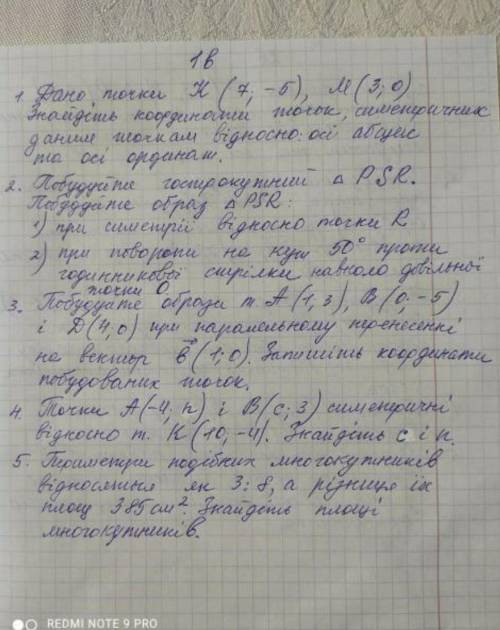 1в
1. Дано точки К (7; -5), М (3; 0)
Знайдіть координати точок, симетричних
даним точкам відносно: осі абсцис
та осі ординат.
2. Побудуйте гострокутний △ PSR.
Побудуйте образ △ PSR:
1) при симетрії відносно точки R
2) при повороті на кут 50° проти
годинникової стрілки навколо довільної
точки О
3. Побудуйте образи т. А (1; 3), В (0; -5)
і D (4; 0) при паралельному перенесенні
на вектор в (1; 0). Запишіть координати
побудованих точок.
4. Точки А (-4; n) і В (с; 3) симетричні
відносно т. К (10; -4). Знайдіть с і n.
5. Периметри подібних многокутників
відносяться як 3:8, а різниця їх
площ 385 см². Знайдіть площі
многокутників.
REDMI NOTE 9 PRO